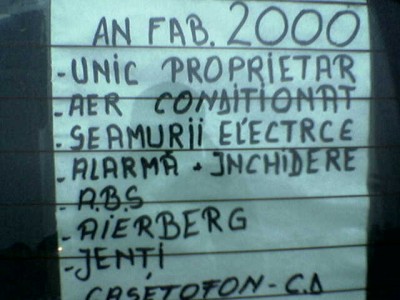 AN FAB. 2000
- UNIC PROPRIETAR
- AER CONDITIONAT
- GEAMURII ELECTRCE
- ALARMĂ + INCHIDERE
- A.B.S
- AIERBERG
- JENȚI
CASETOFON - C.D